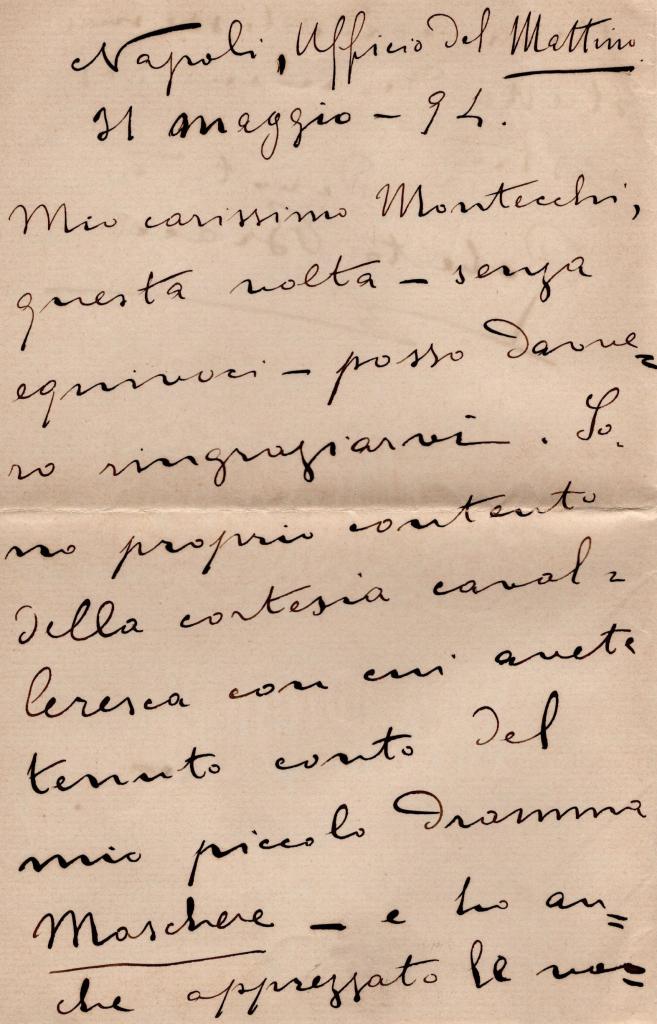 Napoli, Ufficio del Mattino
31 maggio - 94.
Mio carissimo Montecchi,
questa volta - senza
equivoci - posso davve=
ro ringraziarvi. So.
no proprio contento
della cortesia caval=
leresca con cui avete
tenuto conto del
mio piccolo dramma
Maschere - e ho an=
che apprezzato le vo=